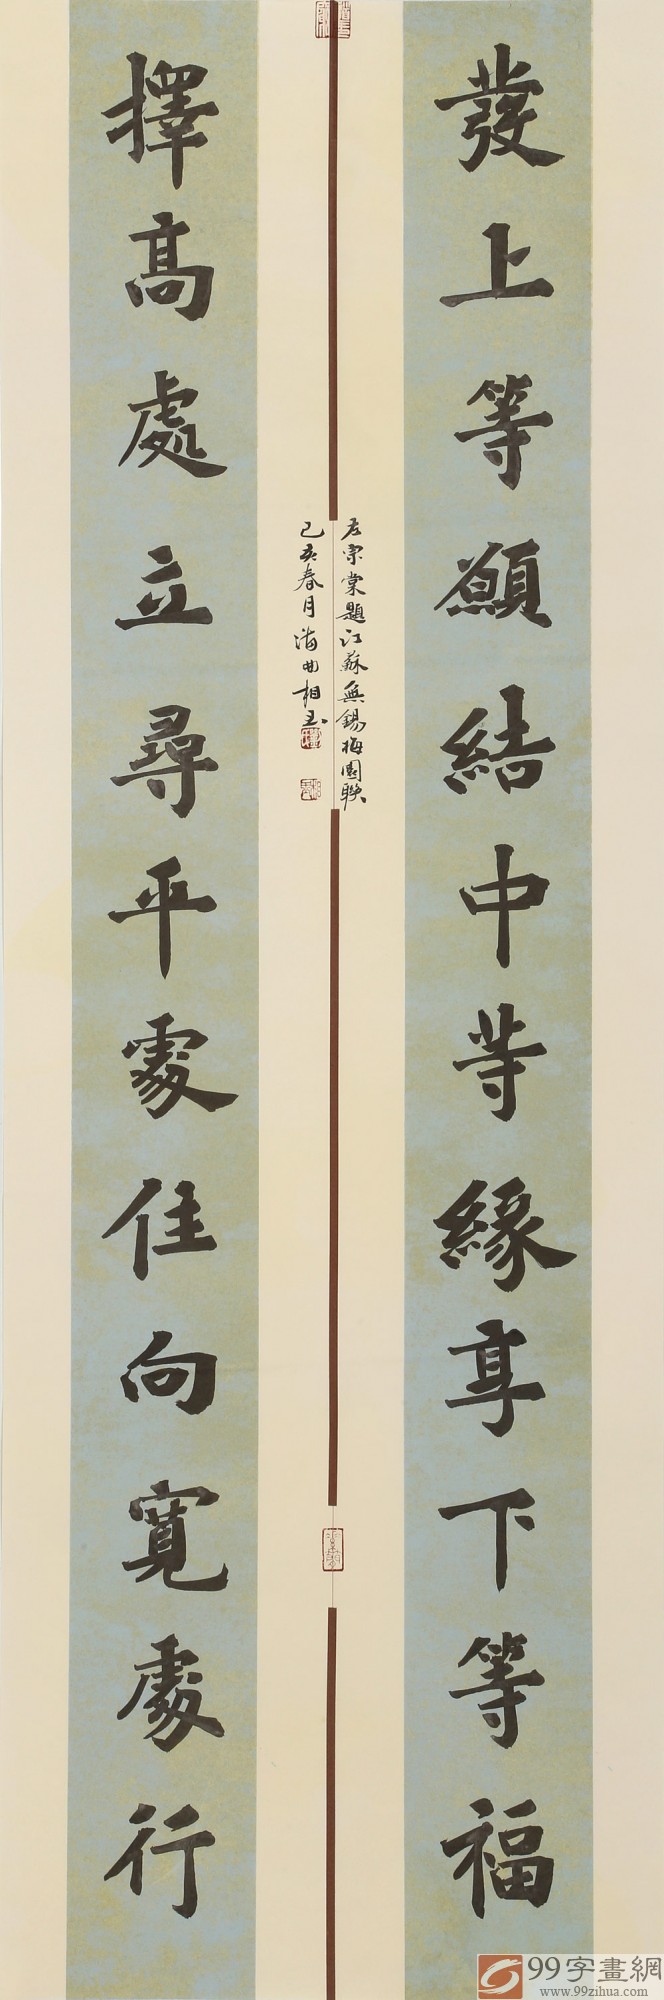 發上等願結中等緣享下等福
擇高處立尋平處住向寬處行
左宗棠題江蘇無錫梅園聯
己亥春月海曲相玉
99字畫網
www.99zihua.com